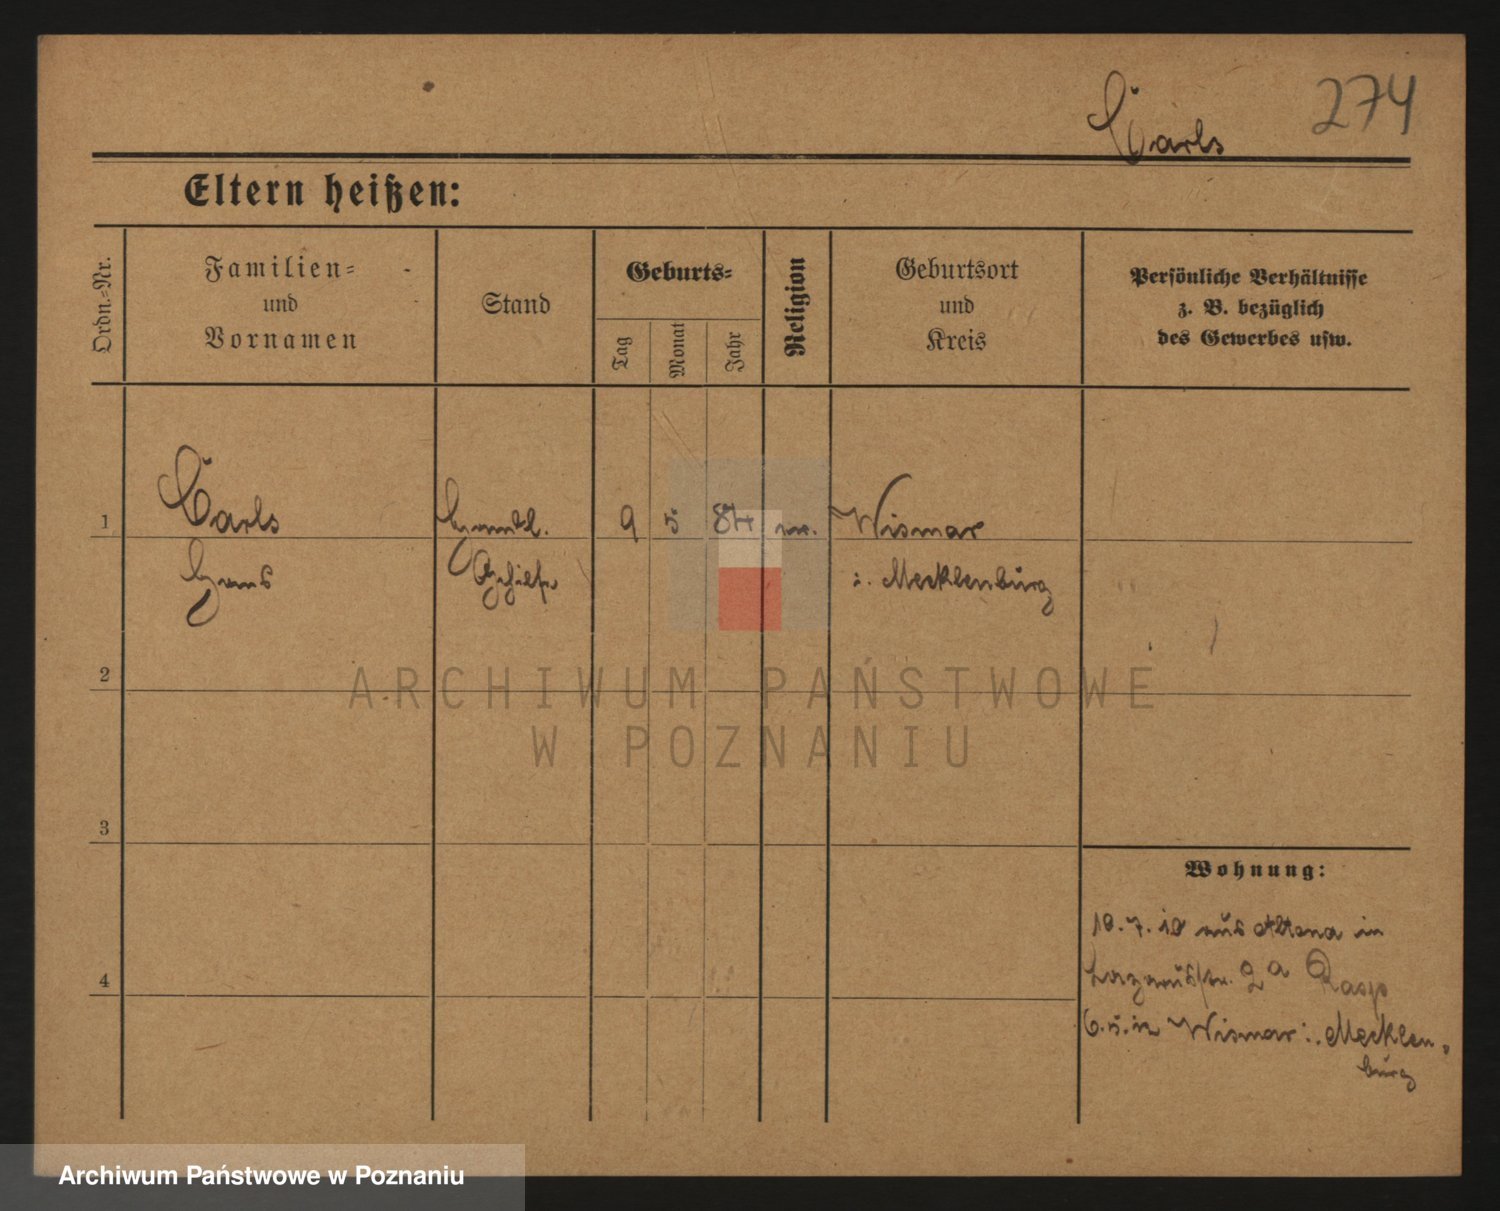 274
Carls
Eltern heißen:
Ordn.-Nr.
Familien-
und
Vornamen
Stand
Geburts-
Tag
Monat
Jahr
Religion
Geburtsort
und
Kreis
Persönliche Verhältnisse
z. B. bezüglich
des Gewerbes usw.
1
Carls
Handl.
9
5
84
Wismar
Hans
Gehilfe
i. Mecklenburg
2
ARCHIWUM PAŃSTWOWE
W POZNANIU
3
Wohnung:
10.7.10 aus Altona in
4
Lazarusstr. 2a Rasp
6.5.12 Wismar i. Mecklen-
burg
Archiwum Państwowe w Poznaniu